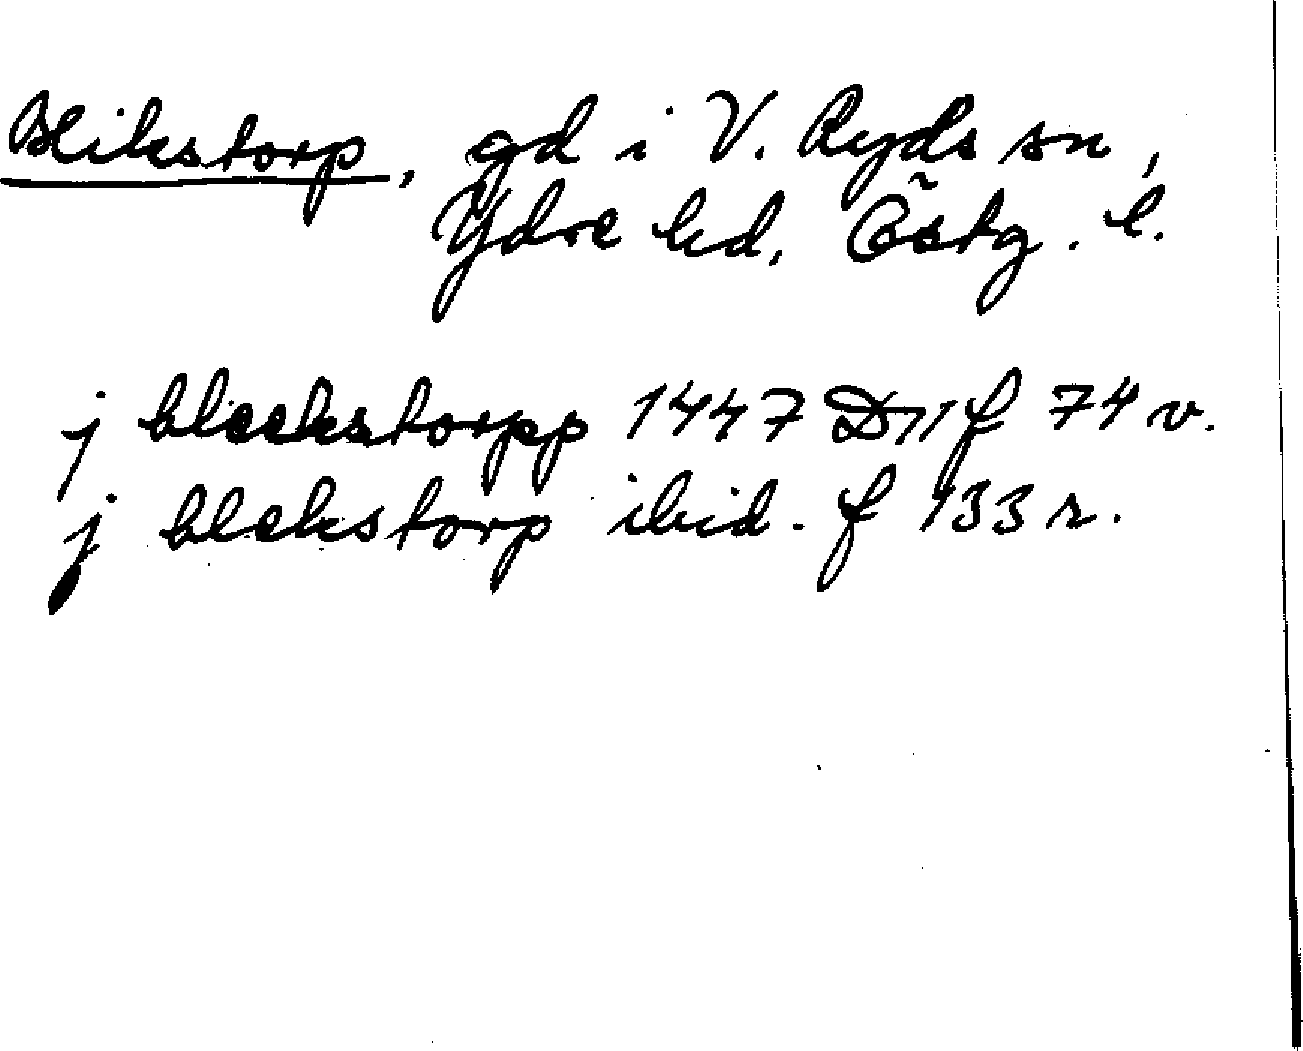 Blikstorp, gd i V. Ryds sn,
Ydre hd, Östg. l.
j bleekstorpp 1447 D11 f 74 v.
j blekstorp ibid. f 133 r.